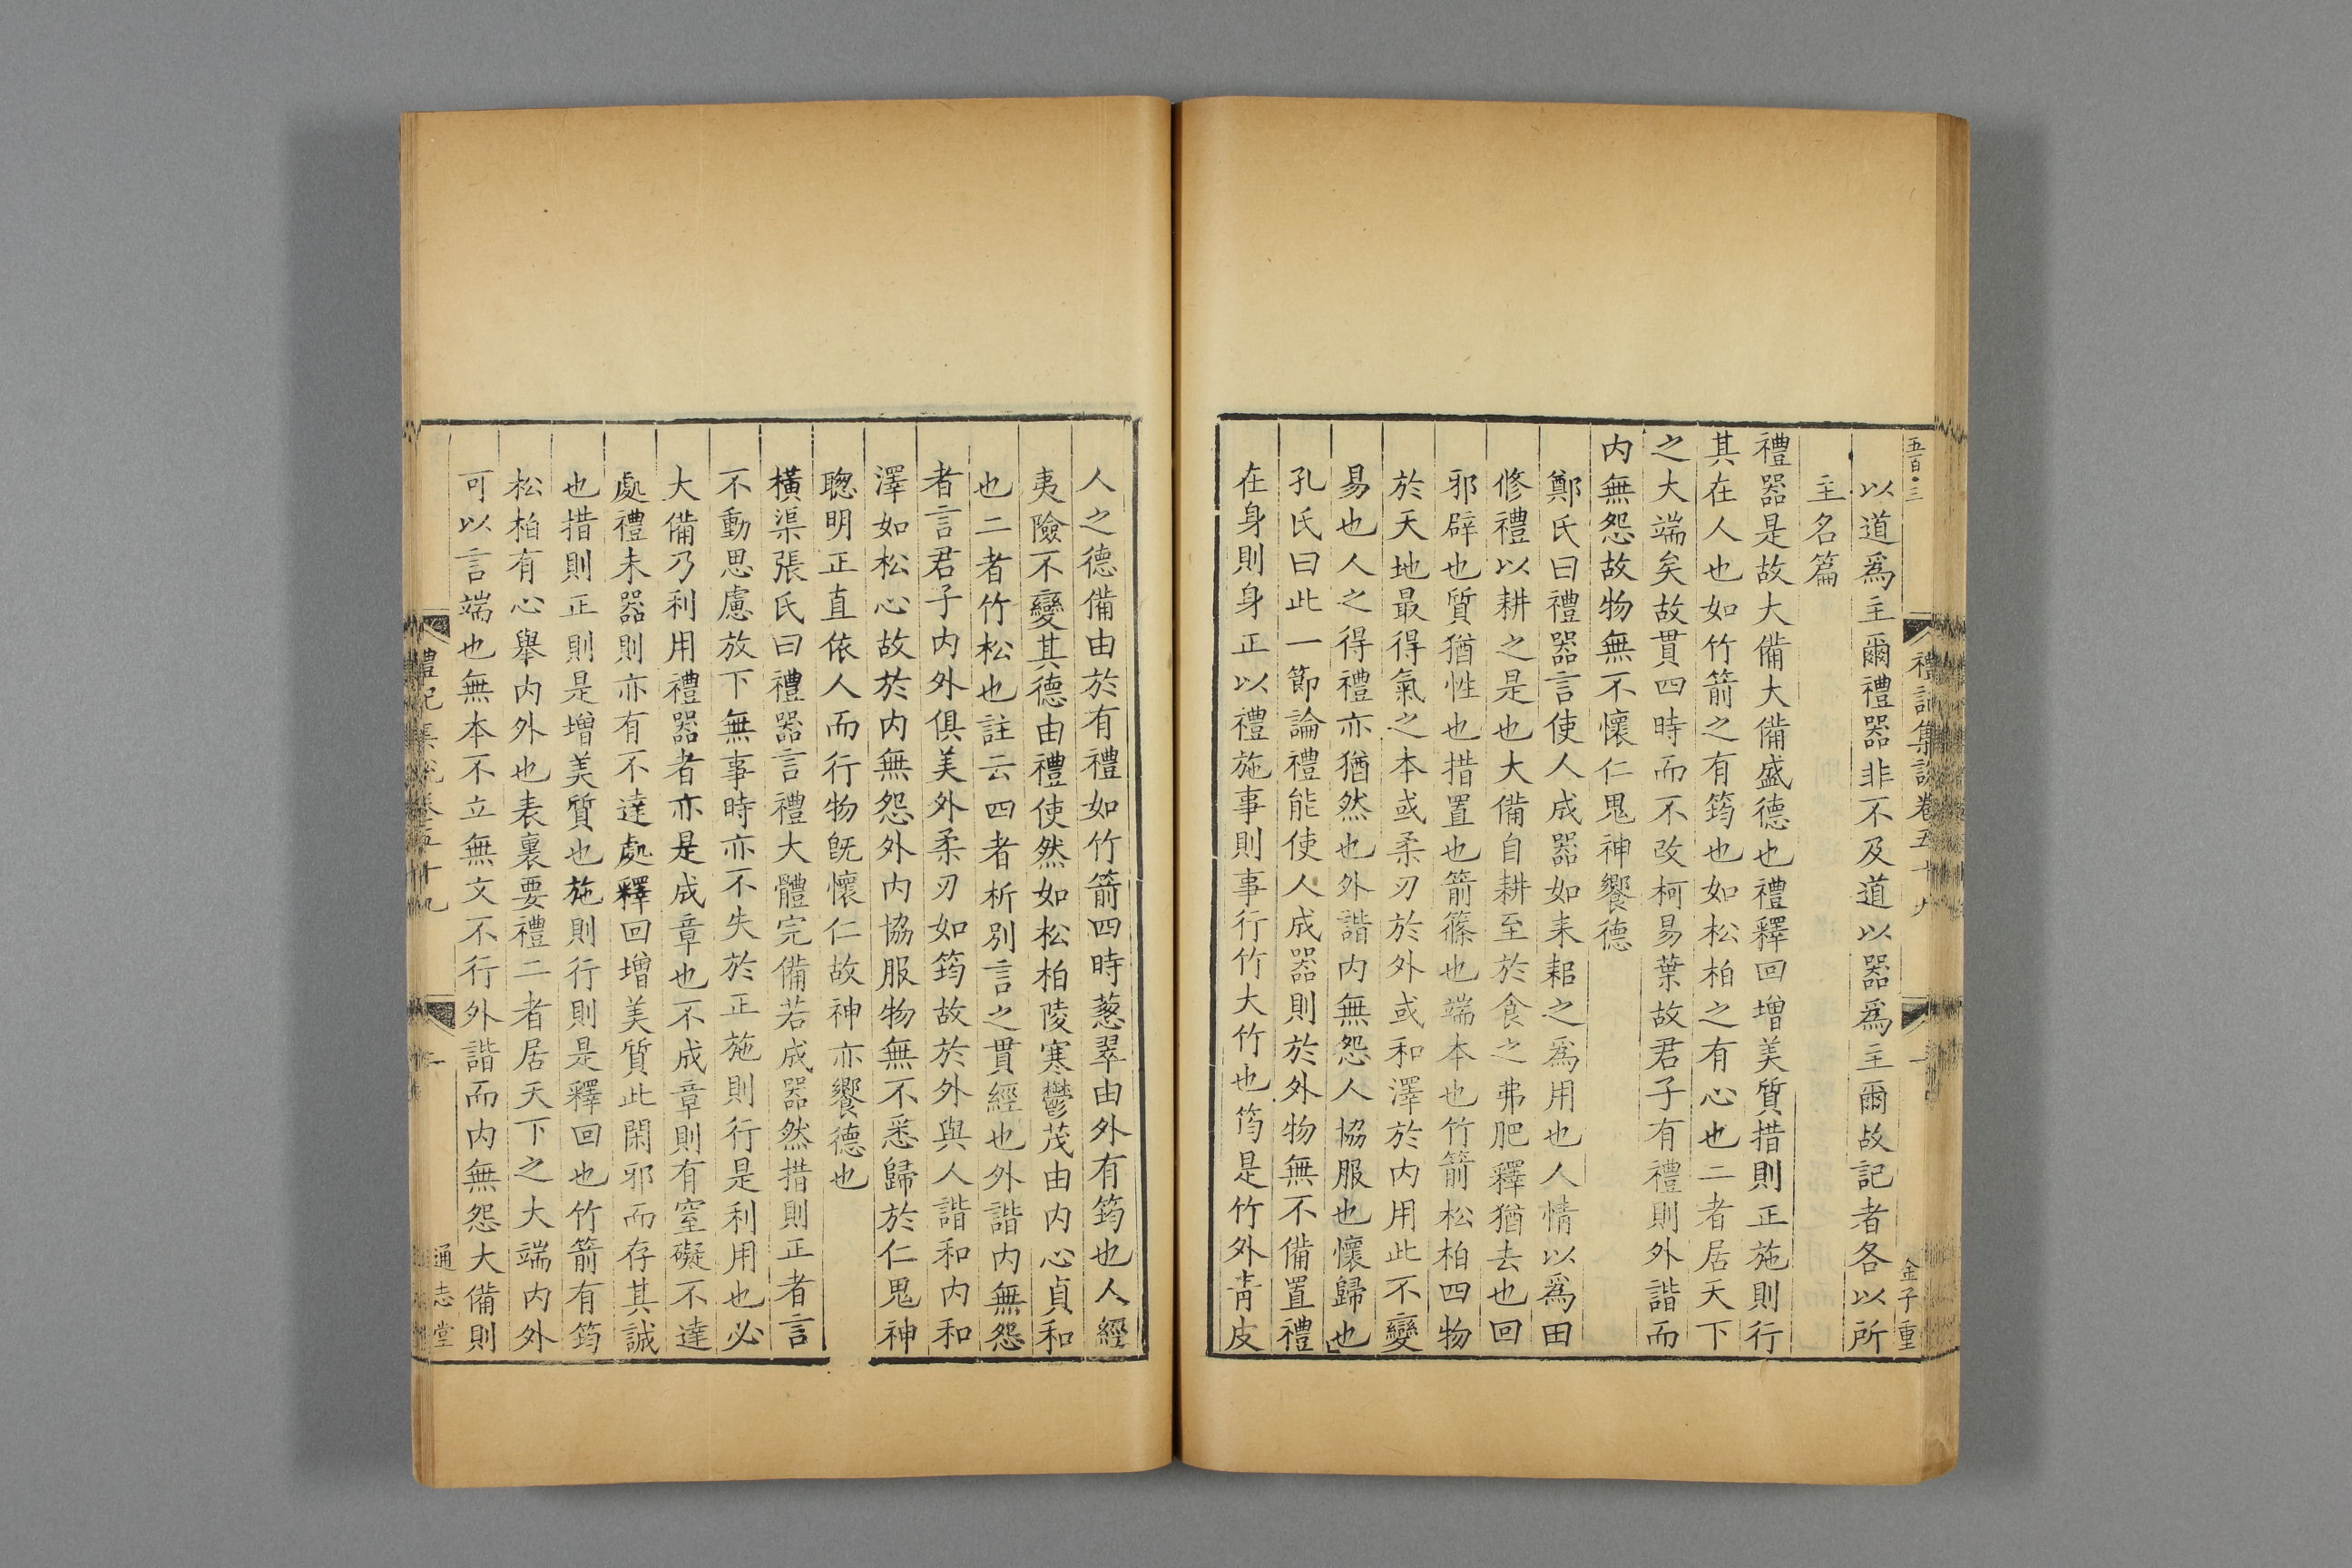 五百〇三
禮記集說卷五十九
一
金子重
以道爲主爾禮器非不及道以器爲主爾故記者各以所
主名篇
禮器是故大備大備盛德也禮釋回增美質措則正施則行
其在人也如竹箭之有筠也如松柏之有心也二者居天下
之大端矣故貫四時而不改柯易葉故君子有禮則外諧而
内無怨故物無不懷仁鬼神饗德
鄭氏曰禮器言使人成器如耒耜之爲用也人情以爲田
修禮以耕之是也大備自耕至於食之弗肥釋猶去也回
邪辟也質猶性也措置也箭篠也端本也竹箭松柏四物
於天地最得氣之本或柔刃於外或和澤於内用此不變
易也人之得禮亦猶然也外諧内無怨人協服也懷歸也
孔氏曰此一節論禮能使人成器則於外物無不備置禮
在身則身正以禮施事則事行竹大竹也筠是竹外青皮
人之德備由於有禮如竹箭四時蔥翠由外有筠也人經
夷險不變其德由禮使然如松柏陵寒鬱茂由内心貞和
也二者竹松也註云四者析別言之貫經也外諧内無怨
者言君子内外俱美外柔刃如筠故於外與人諧和内和
澤如松心故於内無怨外内協服物無不悉歸於仁鬼神
聰明正直依人而行物既懷仁故神亦饗德也
橫渠張氏曰禮器言禮大體完備若成器然措則正者言
不動思慮放下無事時亦不失於正施則行是利用也必
大備乃利用禮器者亦是成章也不成章則有窒礙不達
處禮未器則亦有不達處釋回增美質此閑邪而存其誠
也措則正則是增美質也施則行則是釋回也竹箭有筠
松柏有心舉内外也表裏要禮二者居天下之大端内外
可以言端也無本不立無文不行外諧而内無怨大備則
禮記集說卷五十九
一
通志堂